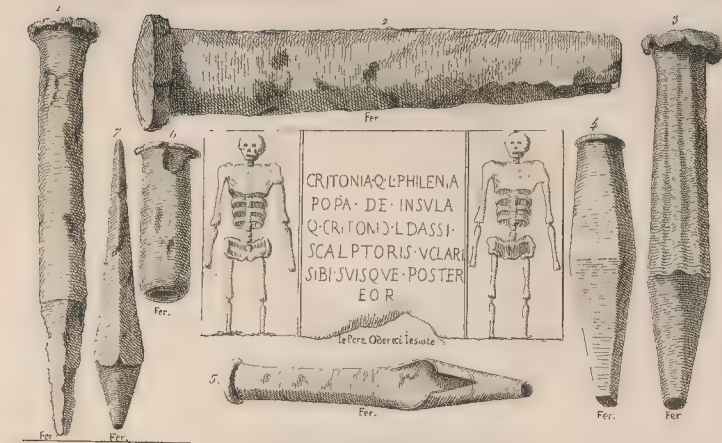 1
2
3
Fer
7
6
4
CRITONIA·Q·L·PHILENIA
POPA·DE·INSVLA
Q·CRITONI·L·DASSI·
SCALPTORIS·VCLARI
SIBI·SVISQVE·POSTER
EOR
Fer.
le Pere Oderici Jesuite
5.
Fer.
Fer.
Fer
Fer
Fer.